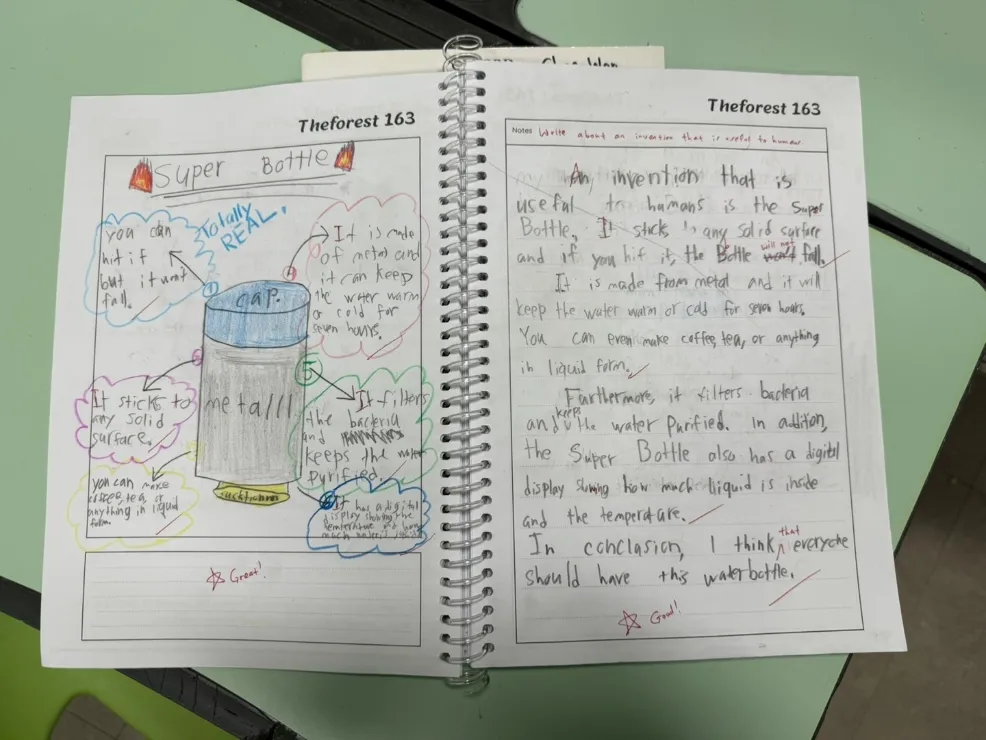 Theforest 163
Super Bottle
Totally
REAL.
you can
hit it
but it wont
fall.
It is made
of metal and
it can keep
the water warm
or cold for
seven hours.
cap.
metalll
It sticks to
any solid
surface.
5
It filters
the bacteria
and
keeps the water
purified.
you can make
coffee, tea, or
anything in liquid
form.
suction
It has a digital
display showing the
temperature and how
much water is
Great!
Theforest 163
Notes Write about an invention that is useful to human.
An invention that is
useful to humans is the Super
Bottle. It sticks to any solid surface
and if you hit it, the Bottle will not fall.
It is made from metal and it will
keep the water warm or cold for seven hours.
You can even make coffee, tea, or anything
in liquid form.
Furthermore, it filters bacteria
and keeps the water purified. In addition,
the Super Bottle also has a digital
display showing how much liquid is inside
and the temperature.
In conclusion, I think that everyone
should have this waterbottle.
Good!